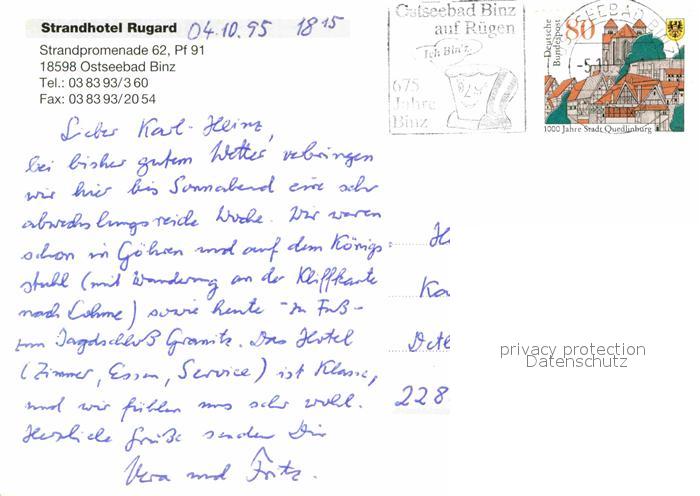 Strandhotel Rugard 04.10.95 18 15
Strandpromenade 62, Pf 91
18598 Ostseebad Binz
Tel.: 03 83 93/3 60
Fax: 03 83 93/20 54
Lieber Karl-Heinz,
bei bisher gutem Wetter verbringen
wir hier bis Sonnabend eine sehr
abwechslungsreiche Woche. Wir waren
schon in Göhren und auf dem Königs-
stuhl (mit Wanderung an der Kliffkante
nach Lohme) sowie heute - zu Fuß -
zum Jagdschloß Granitz. Das Hotel
(Zimmer, Essen, Service) ist Klasse,
und wir fühlen uns sehr wohl.
Herzliche Grüße senden Dir
Vera und Fritz.
Ostseebad Binz
auf Rügen
Ich bin's
675
Jahre
Binz
OSTSEEBAD
-5.10
Deutsche
Bundespost
80
1000 Jahre Stadt Quedlinburg
H
Ka
Detl
228
privacy protection
Datenschutz